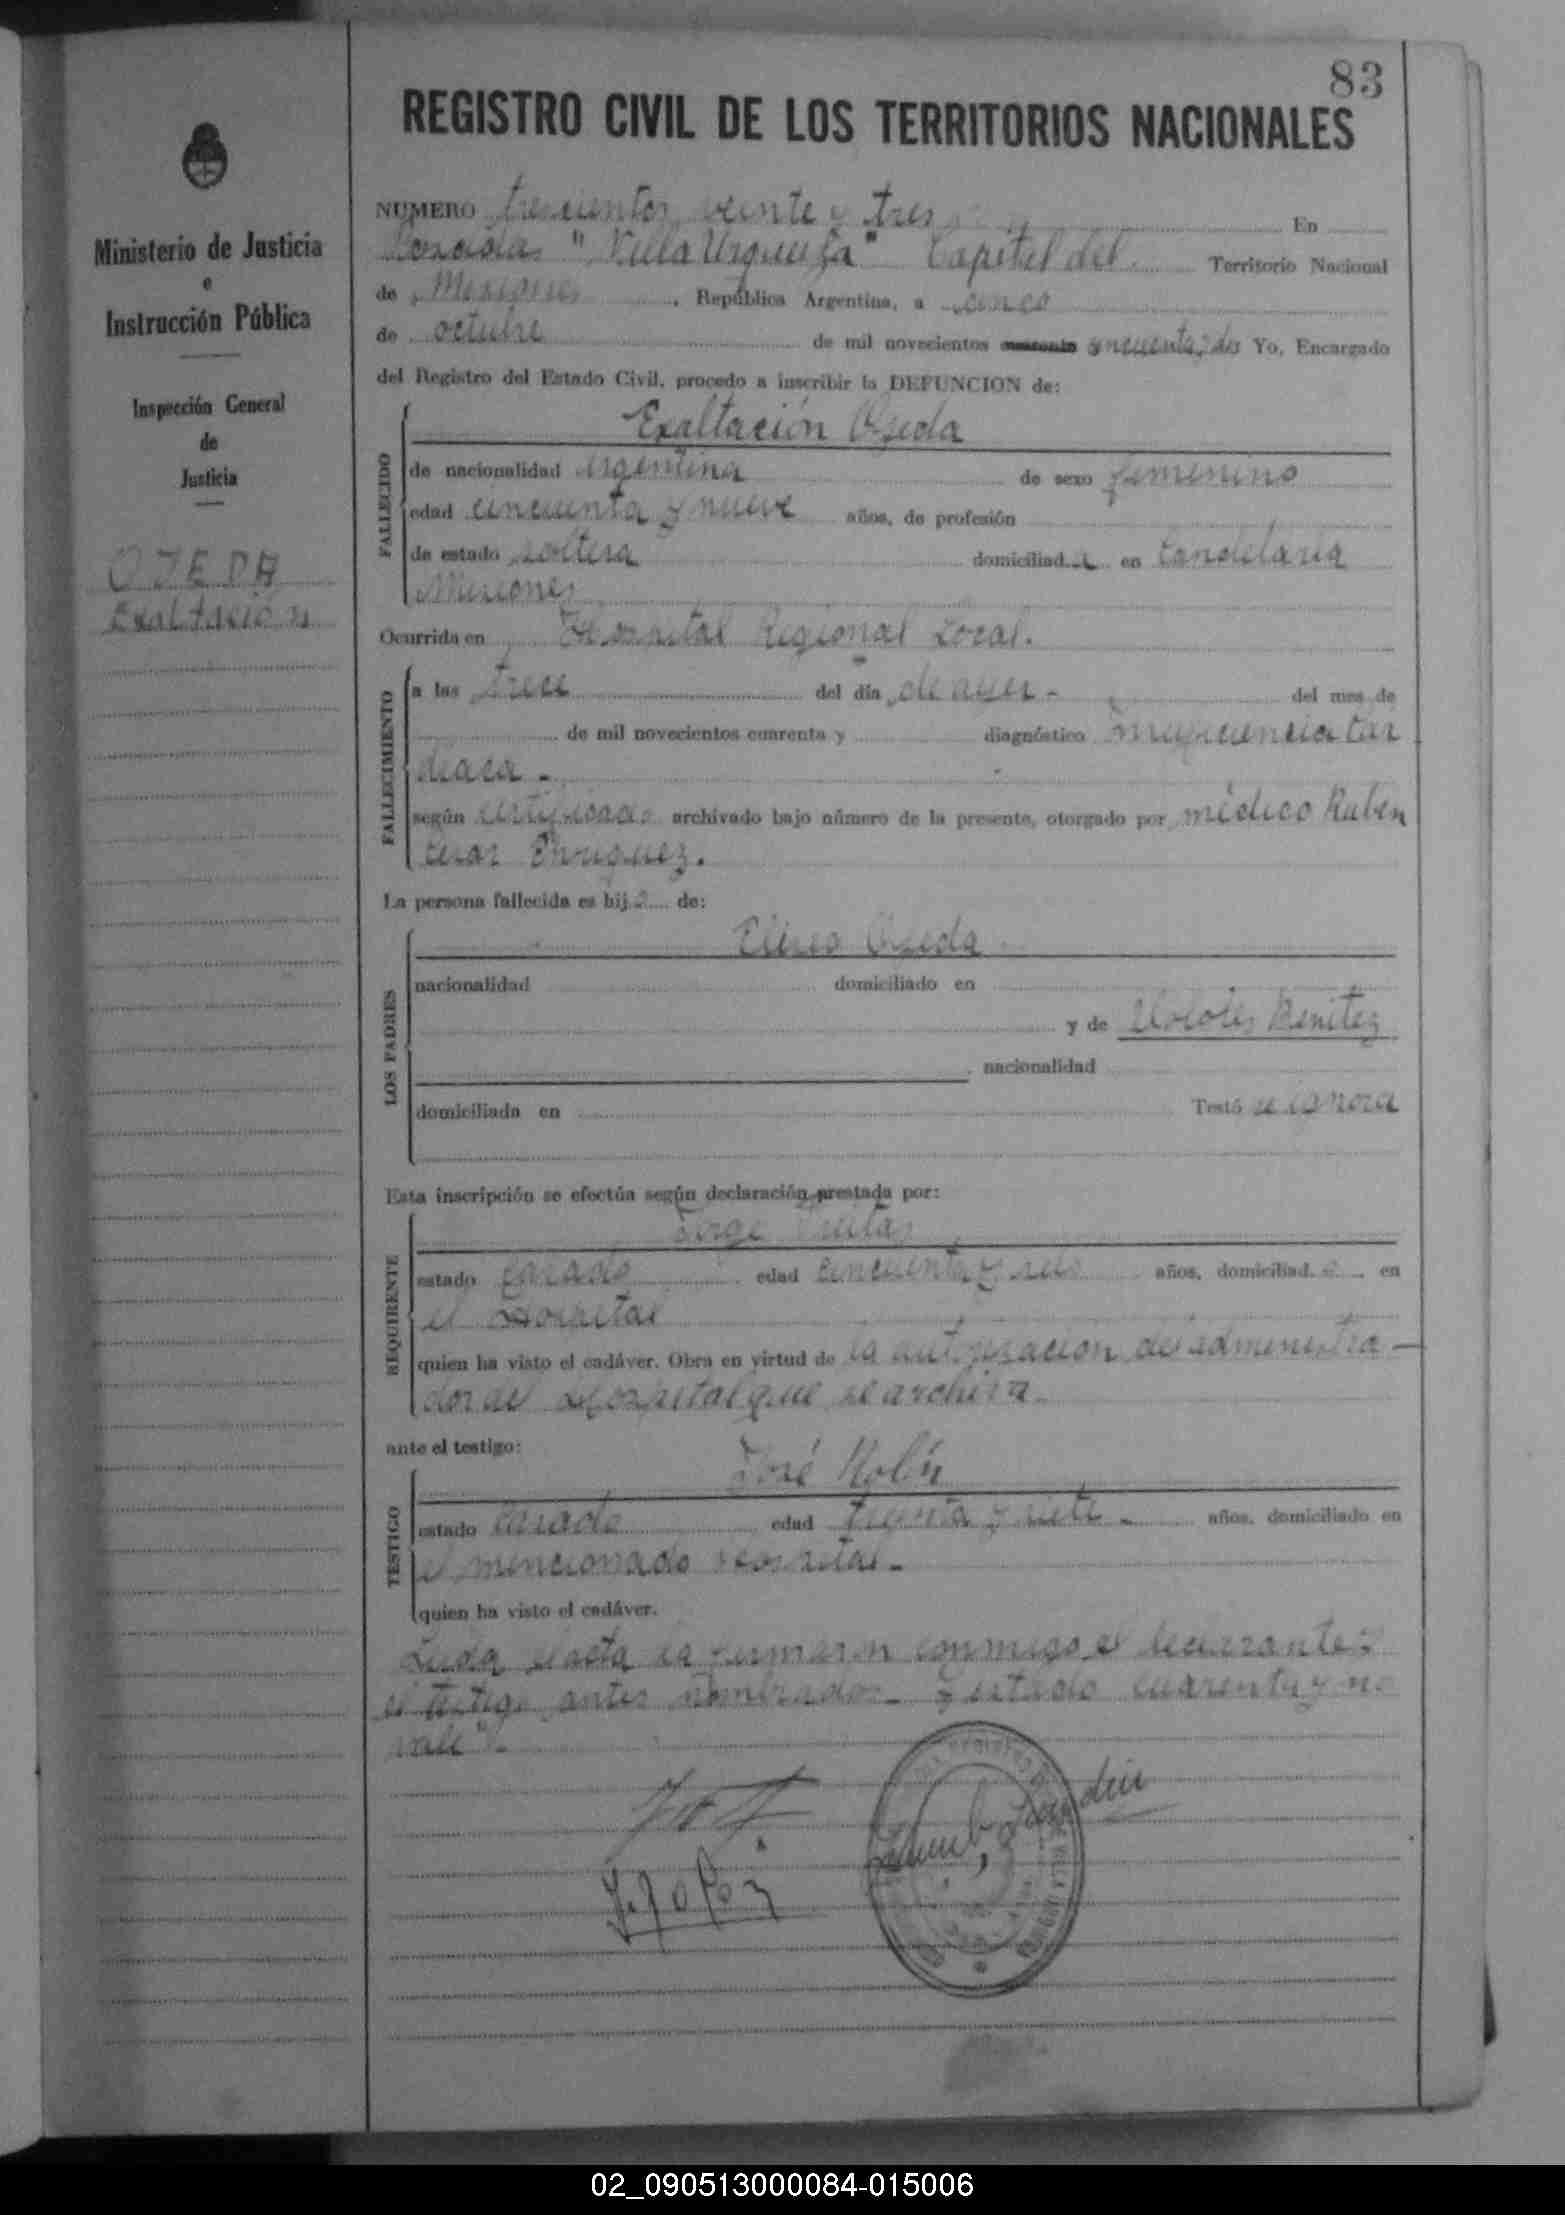 83
REGISTRO CIVIL DE LOS TERRITORIOS NACIONALES
Ministerio de Justicia
e
Instrucción Pública
Inspección General
de
Justicia
OJEDA
Exaltación
NUMERO trescientos veinte y tres En
Posadas "Villa Urquiza" Capital del Territorio Nacional
de Misiones, República Argentina, a cinco
de octubre de mil novecientos cincuenta y dos Yo, Encargado
del Registro del Estado Civil, procedo a inscribir la DEFUNCION de:
FALLECIDO
Exaltación Ojeda
de nacionalidad argentina de sexo femenino
edad cincuenta y nueve años, de profesión
de estado soltera domiciliad a en Candelaria
Misiones
Ocurrida en Hospital Regional Local.
FALLECIMIENTO
a las trece del día de ayer - del mes de
de mil novecientos cuarenta y diagnóstico insuficiencia car
diaca -
según certificado archivado bajo número de la presente, otorgado por médico Ruben
Cesar Enriquez.
La persona fallecida es hij a de:
LOS PADRES
Eliseo Ojeda
nacionalidad domiciliado en
y de Dolores Benitez
nacionalidad
domiciliada en Testó se ignora
Esta inscripción se efectúa según declaración prestada por:
REQUIRENTE
Jorge
estado casado edad cincuenta y seis años, domiciliad o en
el Hospital
quien ha visto el cadáver. Obra en virtud de la autorización del administra-
dor del Hospital que se archiva.
ante el testigo:
TESTIGO
José
estado casado edad treinta y siete - años, domiciliado en
el mencionado Hospital -
quien ha visto el cadáver.
Leida el acta la firmaron conmigo el y
el testigo antes nombrados - testado cuarenta y no
vale".
02_090513000084-015006